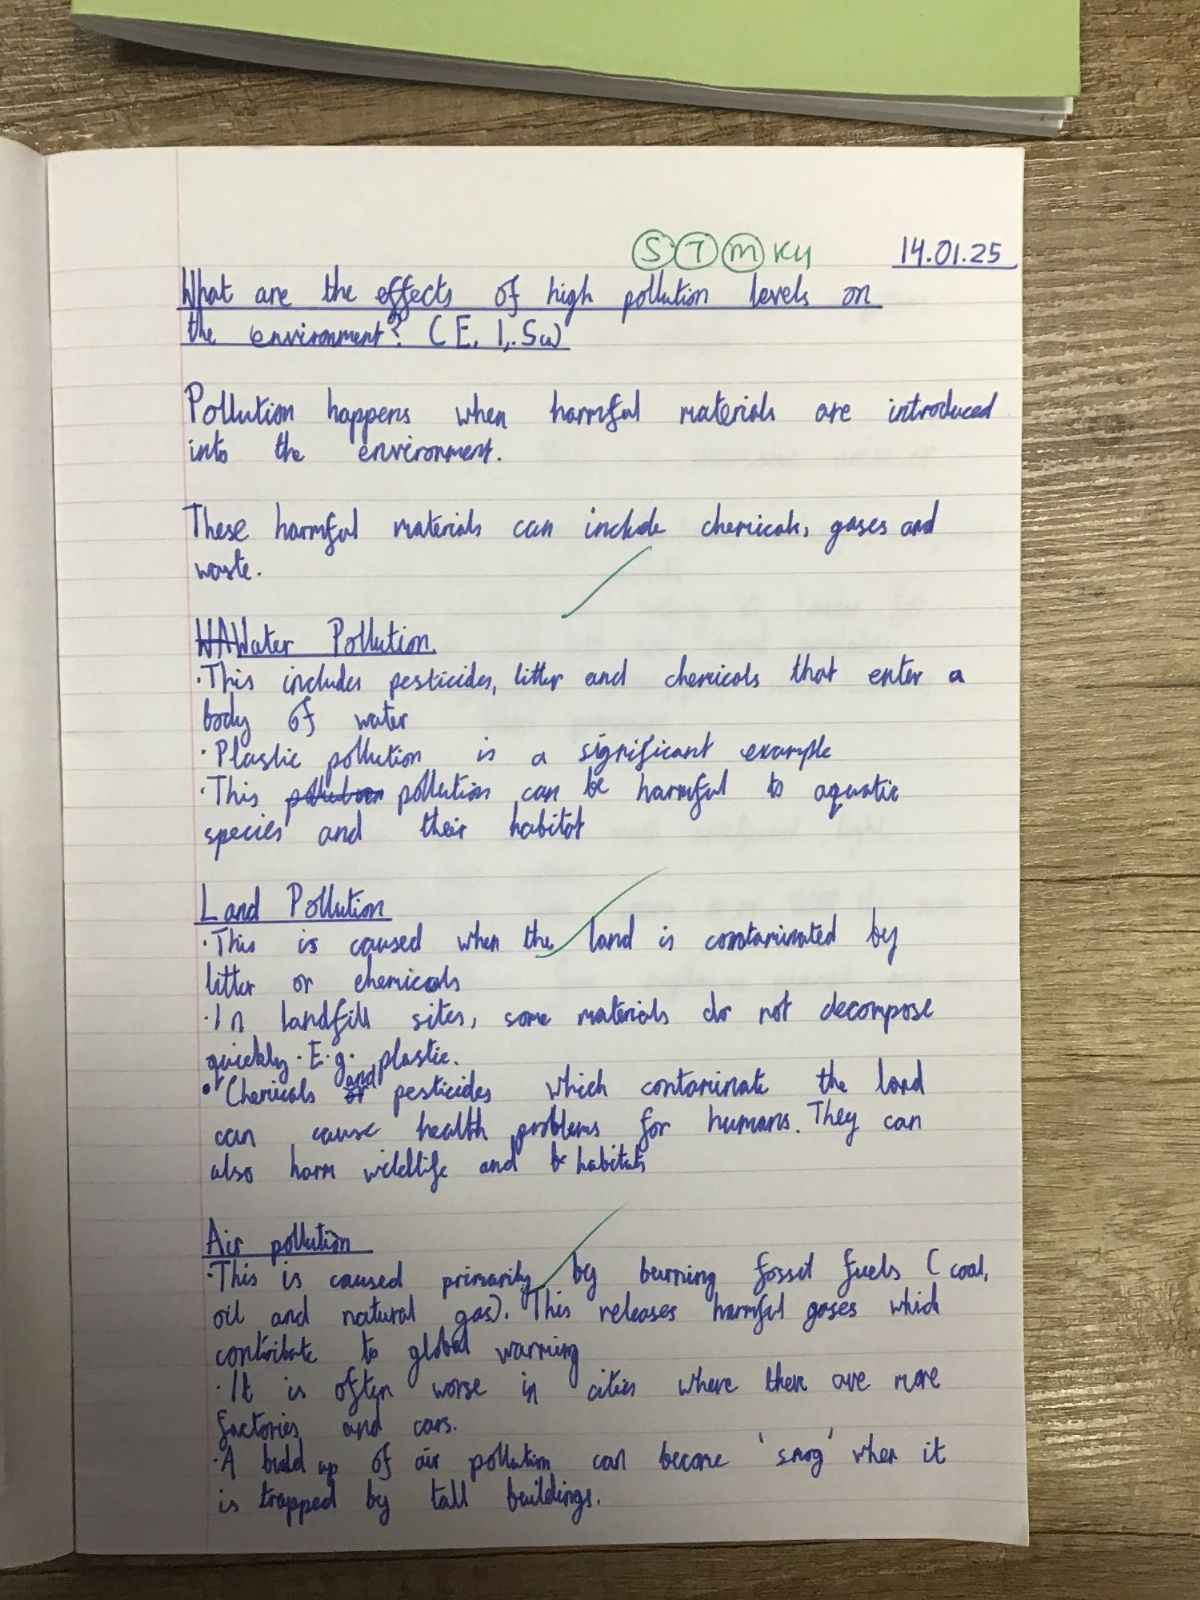 S T M KH 14.01.25
What are the effects of high pollution levels on
the environment? (E, I, Su)
Pollution happens when harmful materials are introduced
into the environment.
These harmful materials can include chemicals, gases and
waste.
WAWater Pollution.
·This includes pesticides, litter and chemicals that enter a
body of water
·Plastic pollution is a significant example
·This pollution pollution can be harmful to aquatic
species and their habitat
Land Pollution
·This is caused when the land is contaminated by
litter or chemicals
·In landfill sites, some materials do not decompose
quickly. E.g. plastic.
·Chemicals or and pesticides which contaminate the land
can cause health problems for humans. They can
also harm wildlife and habitats
Air pollution
·This is caused primarily by burning fossil fuels (coal,
oil and natural gas). This releases harmful gases which
contribute to global warming
·It is often worse in cities where there are more
factories and cars.
·A build up of air pollution can become 'smog' when it
is trapped by tall buildings.